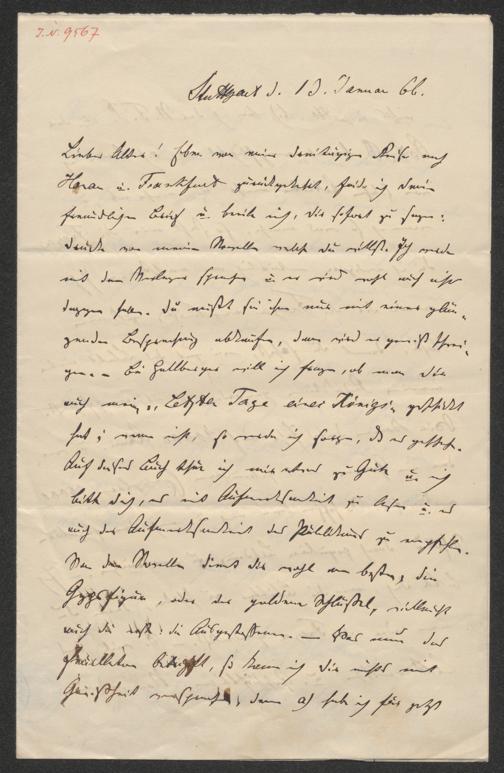 J. N. 9567
Stuttgart d. 13. Januar 66.
Lieber Alter! Eben von meiner Reise nach
u. Frankfurt zurückgekehrt, finde ich dein
freundlichen Brief u. beeile mich, dir sofort zu sagen:
drucke von meinen Novellen welche du willst. Ich werde
mit dem Verleger sprechen u. er wird wohl auch nichts
dagegen haben. Du mußt sie ihm nur mit einer glän-
zenden Besprechung abkaufen, dann wird er gewiß
Bei Hallberger will ich fragen, ob man dir
auch mein „Letzten Tage eines Königs" geschickt
hat; wenn nicht, so werde ich sorgen, daß es geschehe.
Auf dieses Buch thue ich mir etwas zu Gute u. ich
bitte dich, es mit Aufmerksamkeit zu lesen u. es
auch der Aufmerksamkeit des Publikums zu empfehlen.
Von den Novellen dient dir wohl am besten, die
Gypsfigur, oder der goldene Schlüssel, vielleicht
auch die erste: die Ausgestoßenen. — Was nun das
Feuilleton betrifft, so kann ich dir nichts mit
Gewißheit versprechen, denn a) habe ich für jetzt